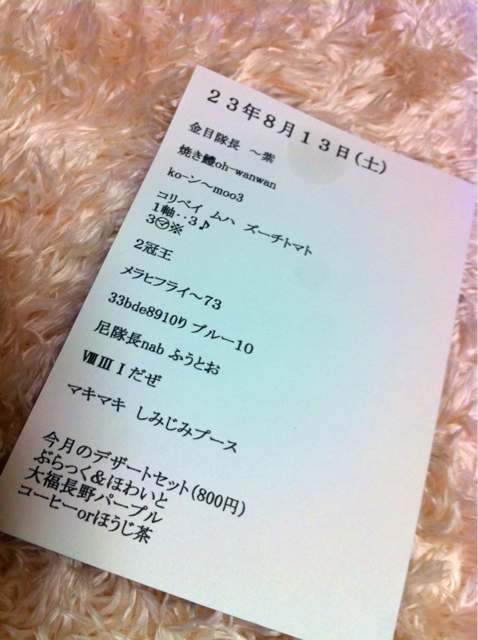 ２３年８月１３日（土）
金目隊長　～紫
焼き鱧oh-wanwan
ko-ン～moo3
コリペイ　ムハ　ズーチトマト
1軸‥3♪
3㋮※
2冠王
メラヒフライ～73
33bde8910り ブルー10
尼隊長nab ふうとお
ⅧⅢⅠだぜ
マキマキ　しみじみプース
今月のデザートセット（800円）
ぶらっく&ほわいと
大福長野パープル
コーヒーorほうじ茶